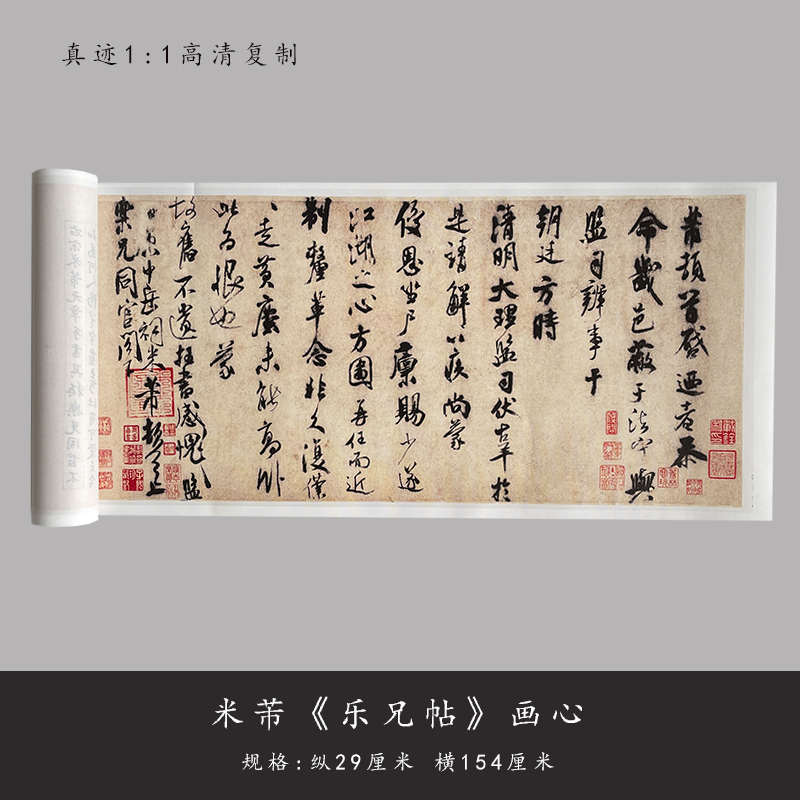 真迹1:1高清复制
芾頓首啓過者恭
命畿邑蔽于法守與
監司辨事于
朝廷方時
清明大理監司伏辜於
是請解以疾尚蒙
優恩坐尸廩賜少遂
江湖之心方圖再任而近
制釐革念非久復僕
〻走黃塵未能高臥
此為恨也蒙
故舊不遺枉書感愧臨
中岳祠米芾頓首上
樂兄同官閣下
米芾《乐兄帖》画心
规格:纵29厘米 横154厘米